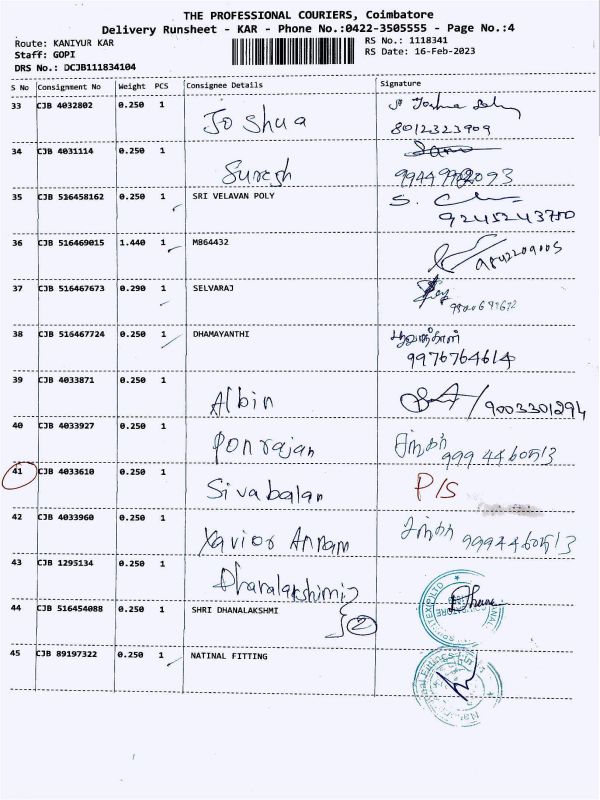 THE PROFESSIONAL COURIERS, Coimbatore
Delivery Runsheet - KAR - Phone No.:0422-3505555 - Page No.:4
Route: KANIYUR KAR
RS No.: 1118341
Staff: GOPI
RS Date: 16-Feb-2023
DRS No.: DCJB111834104
S No Consignment No Weight PCS Consignee Details Signature
33 CJB 4032802 0.250 1 Joshua
8012323909
34 CJB 4031114 0.250 1 Suresh
35 CJB 516458162 0.250 1 SRI VELAVAN POLY
9245243700
36 CJB 516469015 1.440 1 M864432
9842209005
37 CJB 516467673 0.290 1 SELVARAJ
38 CJB 516467724 0.250 1 DHAMAYANTHI
9976764614
39 CJB 4033871 0.250 1 Albin
9003301294
40 CJB 4033927 0.250 1 Ponrajan
9994460513
41 CJB 4033610 0.250 1 Sivabalan P/S
42 CJB 4033960 0.250 1 Xavior Annam
9994460513
43 CJB 1295134 0.250 1 Dhanalakshimi
44 CJB 516454088 0.250 1 SHRI DHANALAKSHMI
2
45 CJB 89197322 0.250 1 NATINAL FITTING